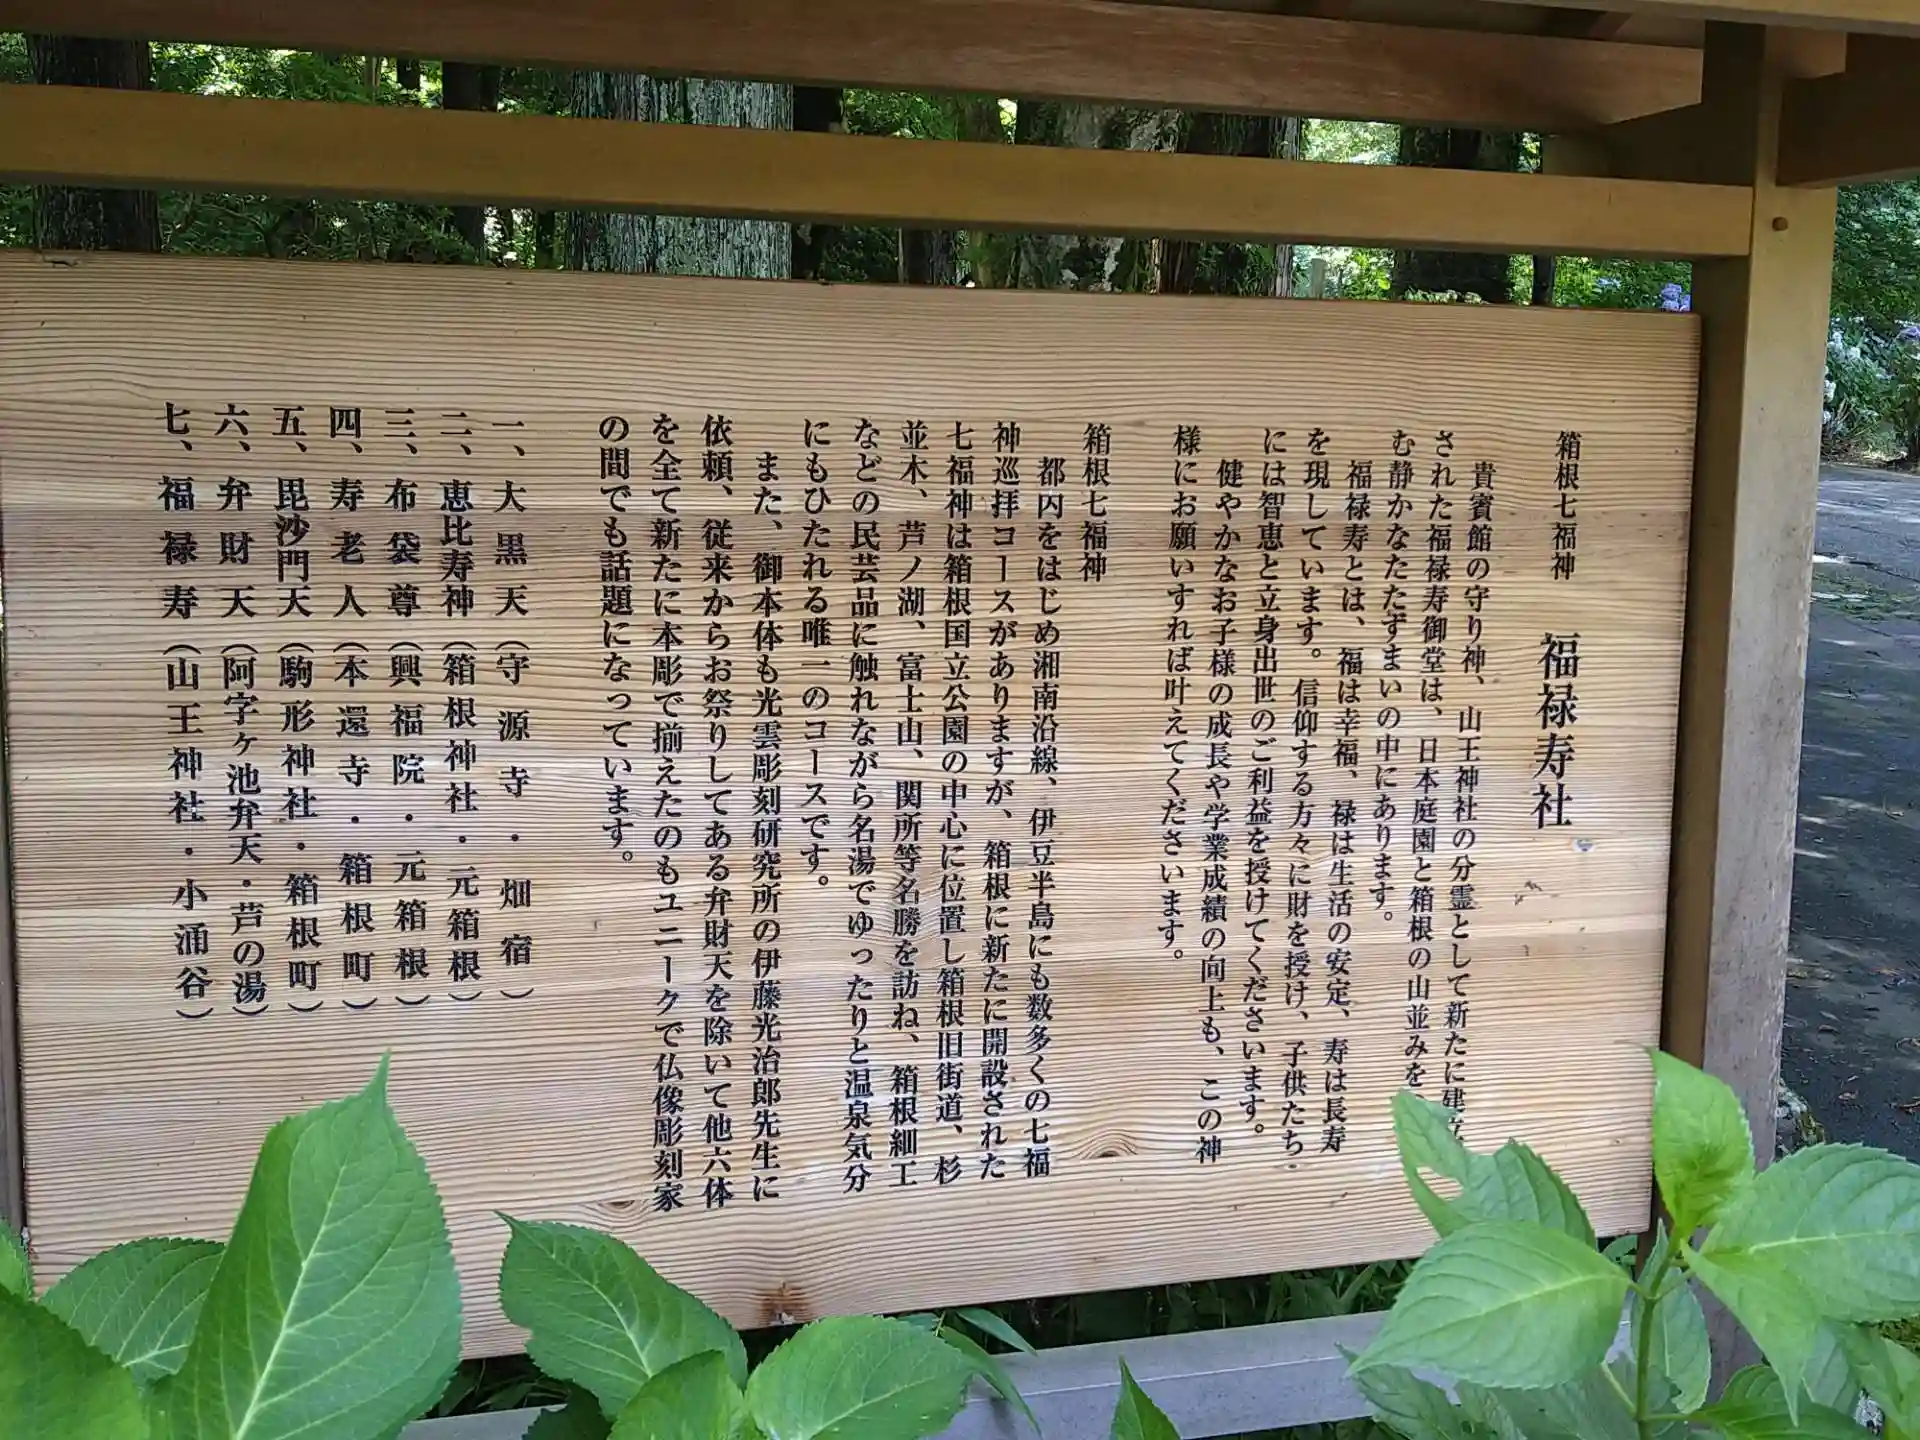 箱根七福神　福禄寿社
貴賓館の守り神、山王神社の分霊として新たに建立
された福禄寿御堂は、日本庭園と箱根の山並みを
む静かなたたずまいの中にあります。
福禄寿とは、福は幸福、禄は生活の安定、寿は長寿
を現しています。信仰する方々に財を授け、子供たち
には智恵と立身出世のご利益を授けてくださいます。
健やかなお子様の成長や学業成績の向上も、この神
様にお願いすれば叶えてくださいます。
箱根七福神
都内をはじめ湘南沿線、伊豆半島にも数多くの七福
神巡拝コースがありますが、箱根に新たに開設された
七福神は箱根国立公園の中心に位置し箱根旧街道、杉
並木、芦ノ湖、富士山、関所等名勝を訪ね、箱根細工
などの民芸品に触れながら名湯でゆったりと温泉気分
にもひたれる唯一のコースです。
また、御本体も光雲彫刻研究所の伊藤光治郎先生に
依頼、従来からお祭りしてある弁財天を除いて他六体
を全て新たに本彫で揃えたのもユニークで仏像彫刻家
の間でも話題になっています。
一、大黒天（守源寺・畑宿）
二、恵比寿神（箱根神社・元箱根）
三、布袋尊（興福院・元箱根）
四、寿老人（本還寺・箱根町）
五、毘沙門天（駒形神社・箱根町）
六、弁財天（阿字ヶ池弁天・芦の湯）
七、福禄寿（山王神社・小涌谷）